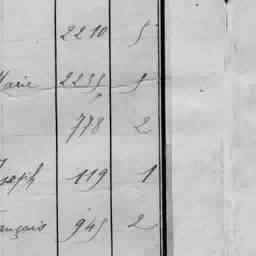 2210 5
Marie 2235 5
778 2
Joseph 119 1
François 945 2